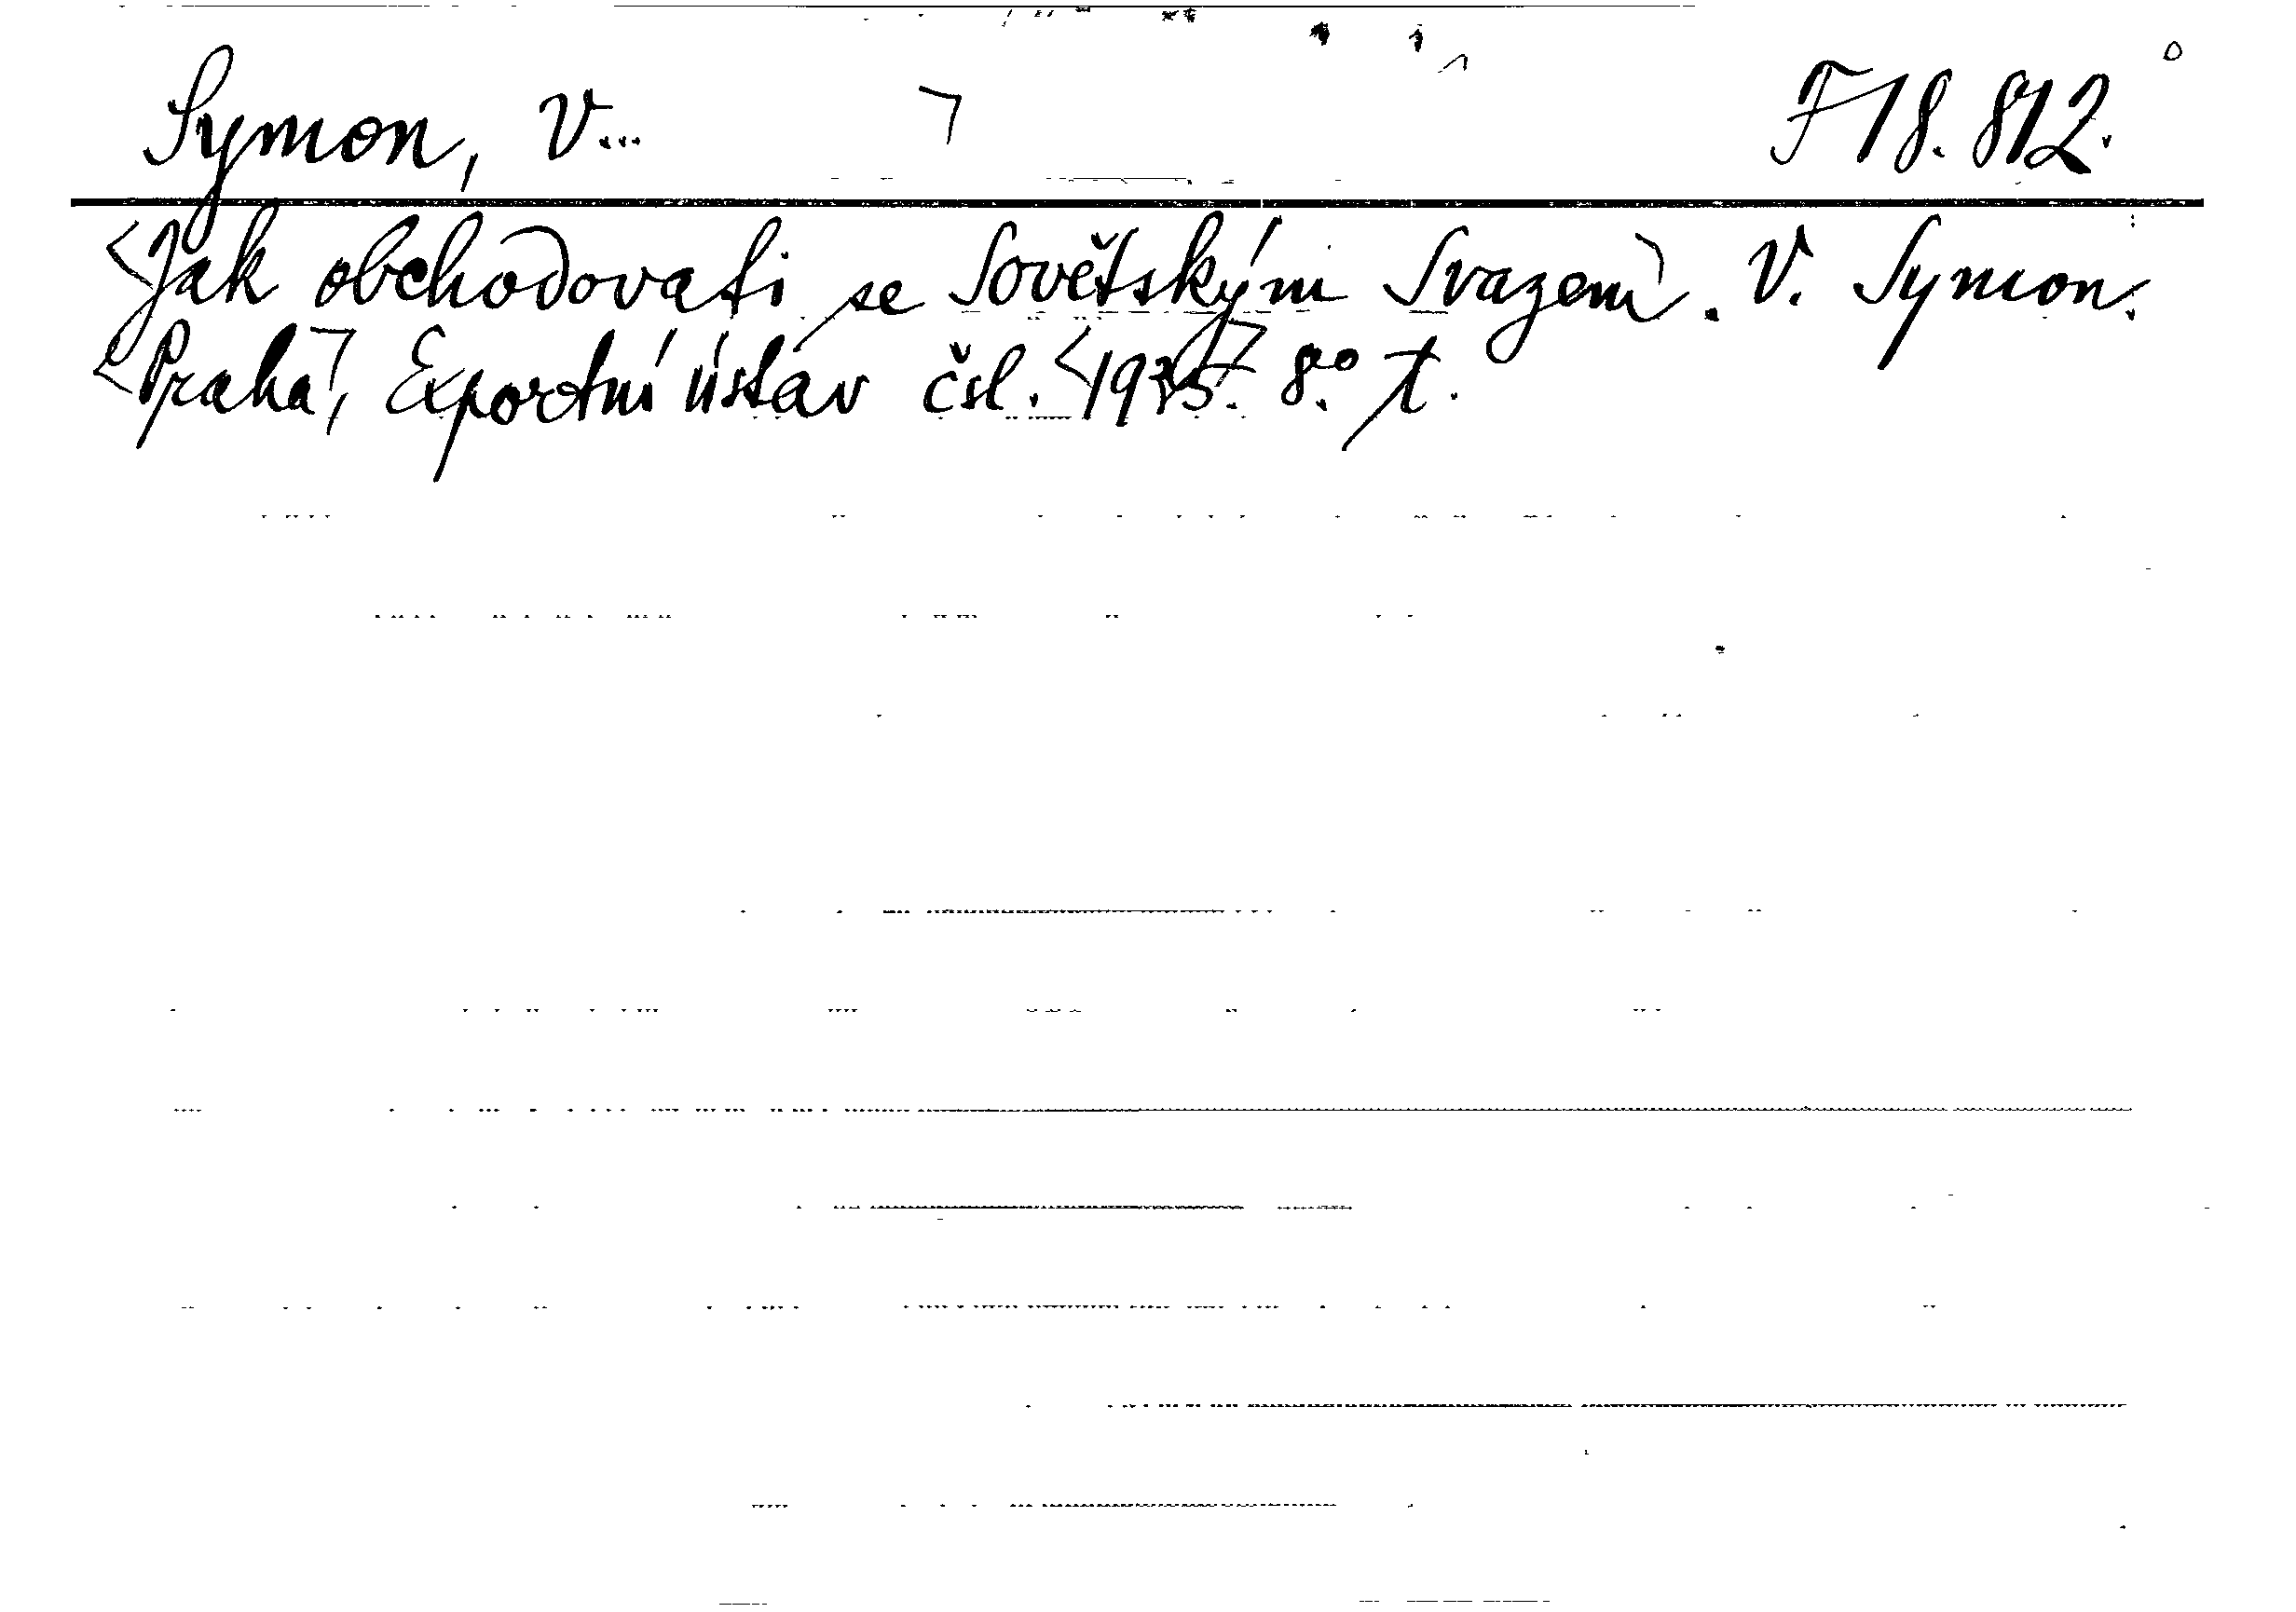 Symon, V... F 18.812.
Jak obchodovati se Sovětským Svazem. V. Symon.
Praha, Exportní ústav čsl. 1935. 8° t.